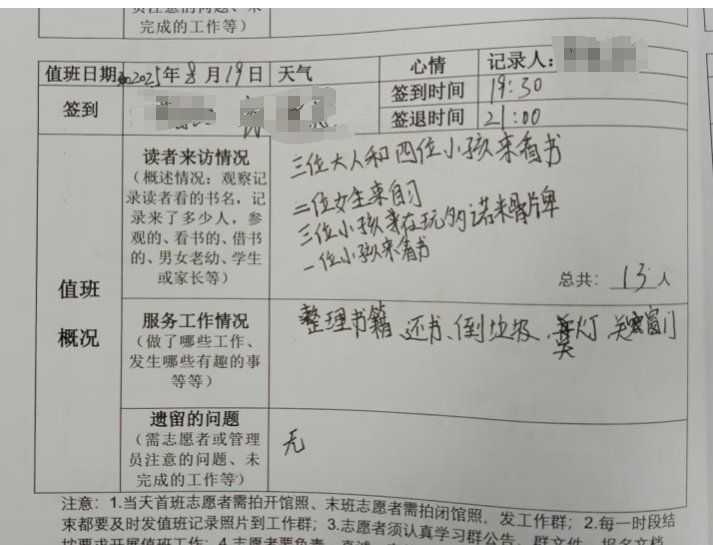 员注意的问题、未
完成的工作等）
值班日期 2025年8月19日 天气 心情 记录人：
签到 签到时间 19:30
签退时间 21:00
值班
概况
读者来访情况
（概述情况：观察记
录读者看的书名，记
录来了多少人，参
观的、看书的、借书
的、男女老幼、学生
或家长等）
三位大人和四位小孩来看书
二位女生来自习
三位小孩来在玩多诺米骨牌
一位小孩来看书
总共：13人
服务工作情况
（做了哪些工作、
发生哪些有趣的事
等等）
整理书籍、还书、倒垃圾、关灯、关窗门
遗留的问题
（需志愿者或管理
员注意的问题、未
完成的工作等）
无
注意：1.当天首班志愿者需拍开馆照、末班志愿者需拍闭馆照，发工作群；2.每一时段结
束都要及时发值班记录照片到工作群；3.志愿者须认真学习群公告、群文件、报名文档
按要求开展值班工作；4.志愿者要负责、真诚